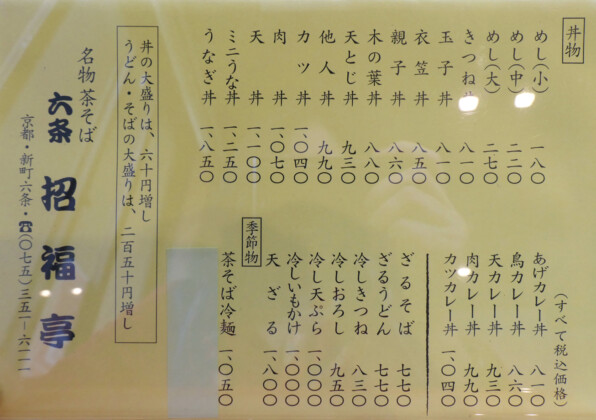 丼物
めし(小) 一八〇
めし(中) 二二〇
めし(大) 二七〇
きつね丼 八一〇
玉子丼 八一〇
衣笠丼 八五〇
親子丼 八六〇
木の葉丼 八八〇
天とじ丼 九三〇
他人丼 九九〇
カツ丼 一、〇四〇
肉丼 一、〇七〇
天丼 一、一〇〇
ミニうな丼 一、二五〇
うなぎ丼 一、八五〇
(すべて税込価格)
あげカレー丼 八一〇
鳥カレー丼 八六〇
天カレー丼 九三〇
肉カレー丼 九九〇
カツカレー丼 一、〇四〇
季節物
ざるそば 七七〇
ざるうどん 七七〇
冷しきつね 八三〇
冷しおろし 九五〇
冷し天ぷら 一、〇〇〇
冷しいもかけ 一、〇〇〇
天ざる 一、八〇〇
茶そば冷麺 一、〇五〇
丼の大盛りは、六十円増し
うどん・そばの大盛りは、二百五十円増し
名物茶そば
六条招福亭
京都・新町六条・☎(〇七五)三五一ー六一一一